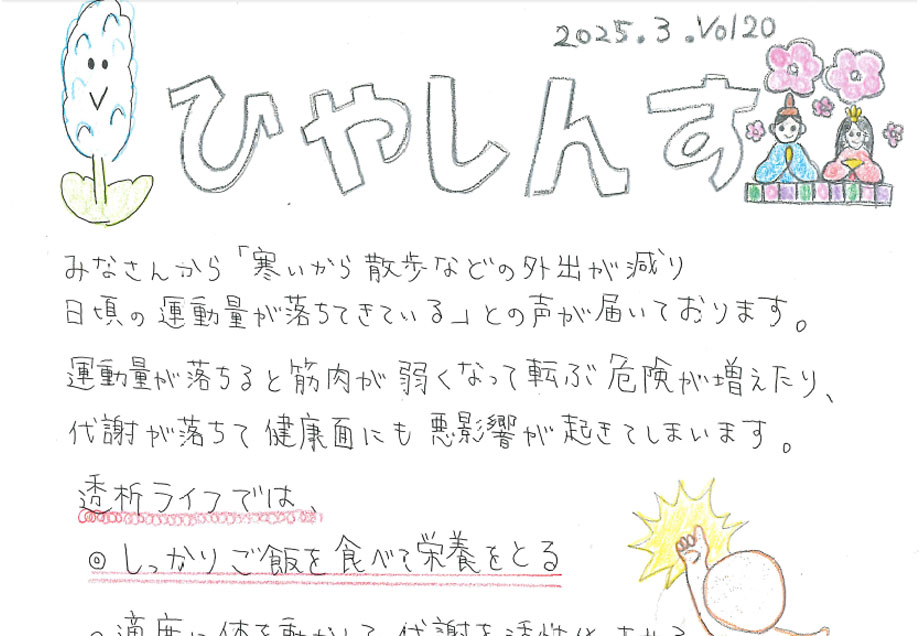 2025.3.Vol20
ひやしんす
みなさんから「寒いから散歩などの外出が減り
日頃の運動量が落ちてきている」との声が届いております。
運動量が落ちると筋肉が弱くなって転ぶ危険が増えたり、
代謝が落ちて健康面にも悪影響が起きてしまいます。
透析ライフでは、
◎しっかりご飯を食べて栄養をとる
適度に体を動かして代謝を活性化させる